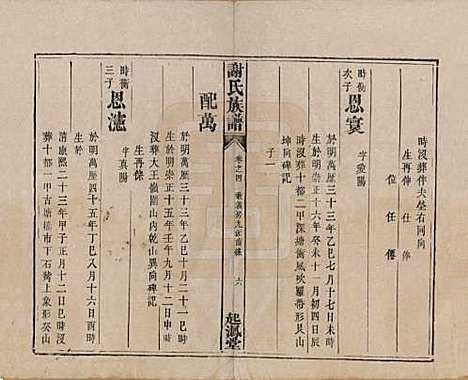 時沒葬伴夫塋右同向
生再伸 仕 偆
位 任 僊
時衡次子 恩寰 字愛陽
生於明萬歷三十三年乙巳七月十七日未時
沒於明崇正十六年癸未十一月初四日辰
時葬十都二甲深塘衡風吹羅帶形艮山
坤向碑記
子一
謝氏族譜
卷之四
六
起鳳堂
配萬
生於明萬歷三十三年乙巳十月二十一巳時
沒於明崇正十五年壬午九月十二日申時
葬大王嶺圖山內乾山巽向碑記
生再傑
時衡三子 恩瀍 字真陽
生於明萬歷四十五年丁巳八月十六日酉時
沒於清康熙二十三年甲子正月十二日巳時
葬十都一甲古塘樵市下石灣上象形癸山